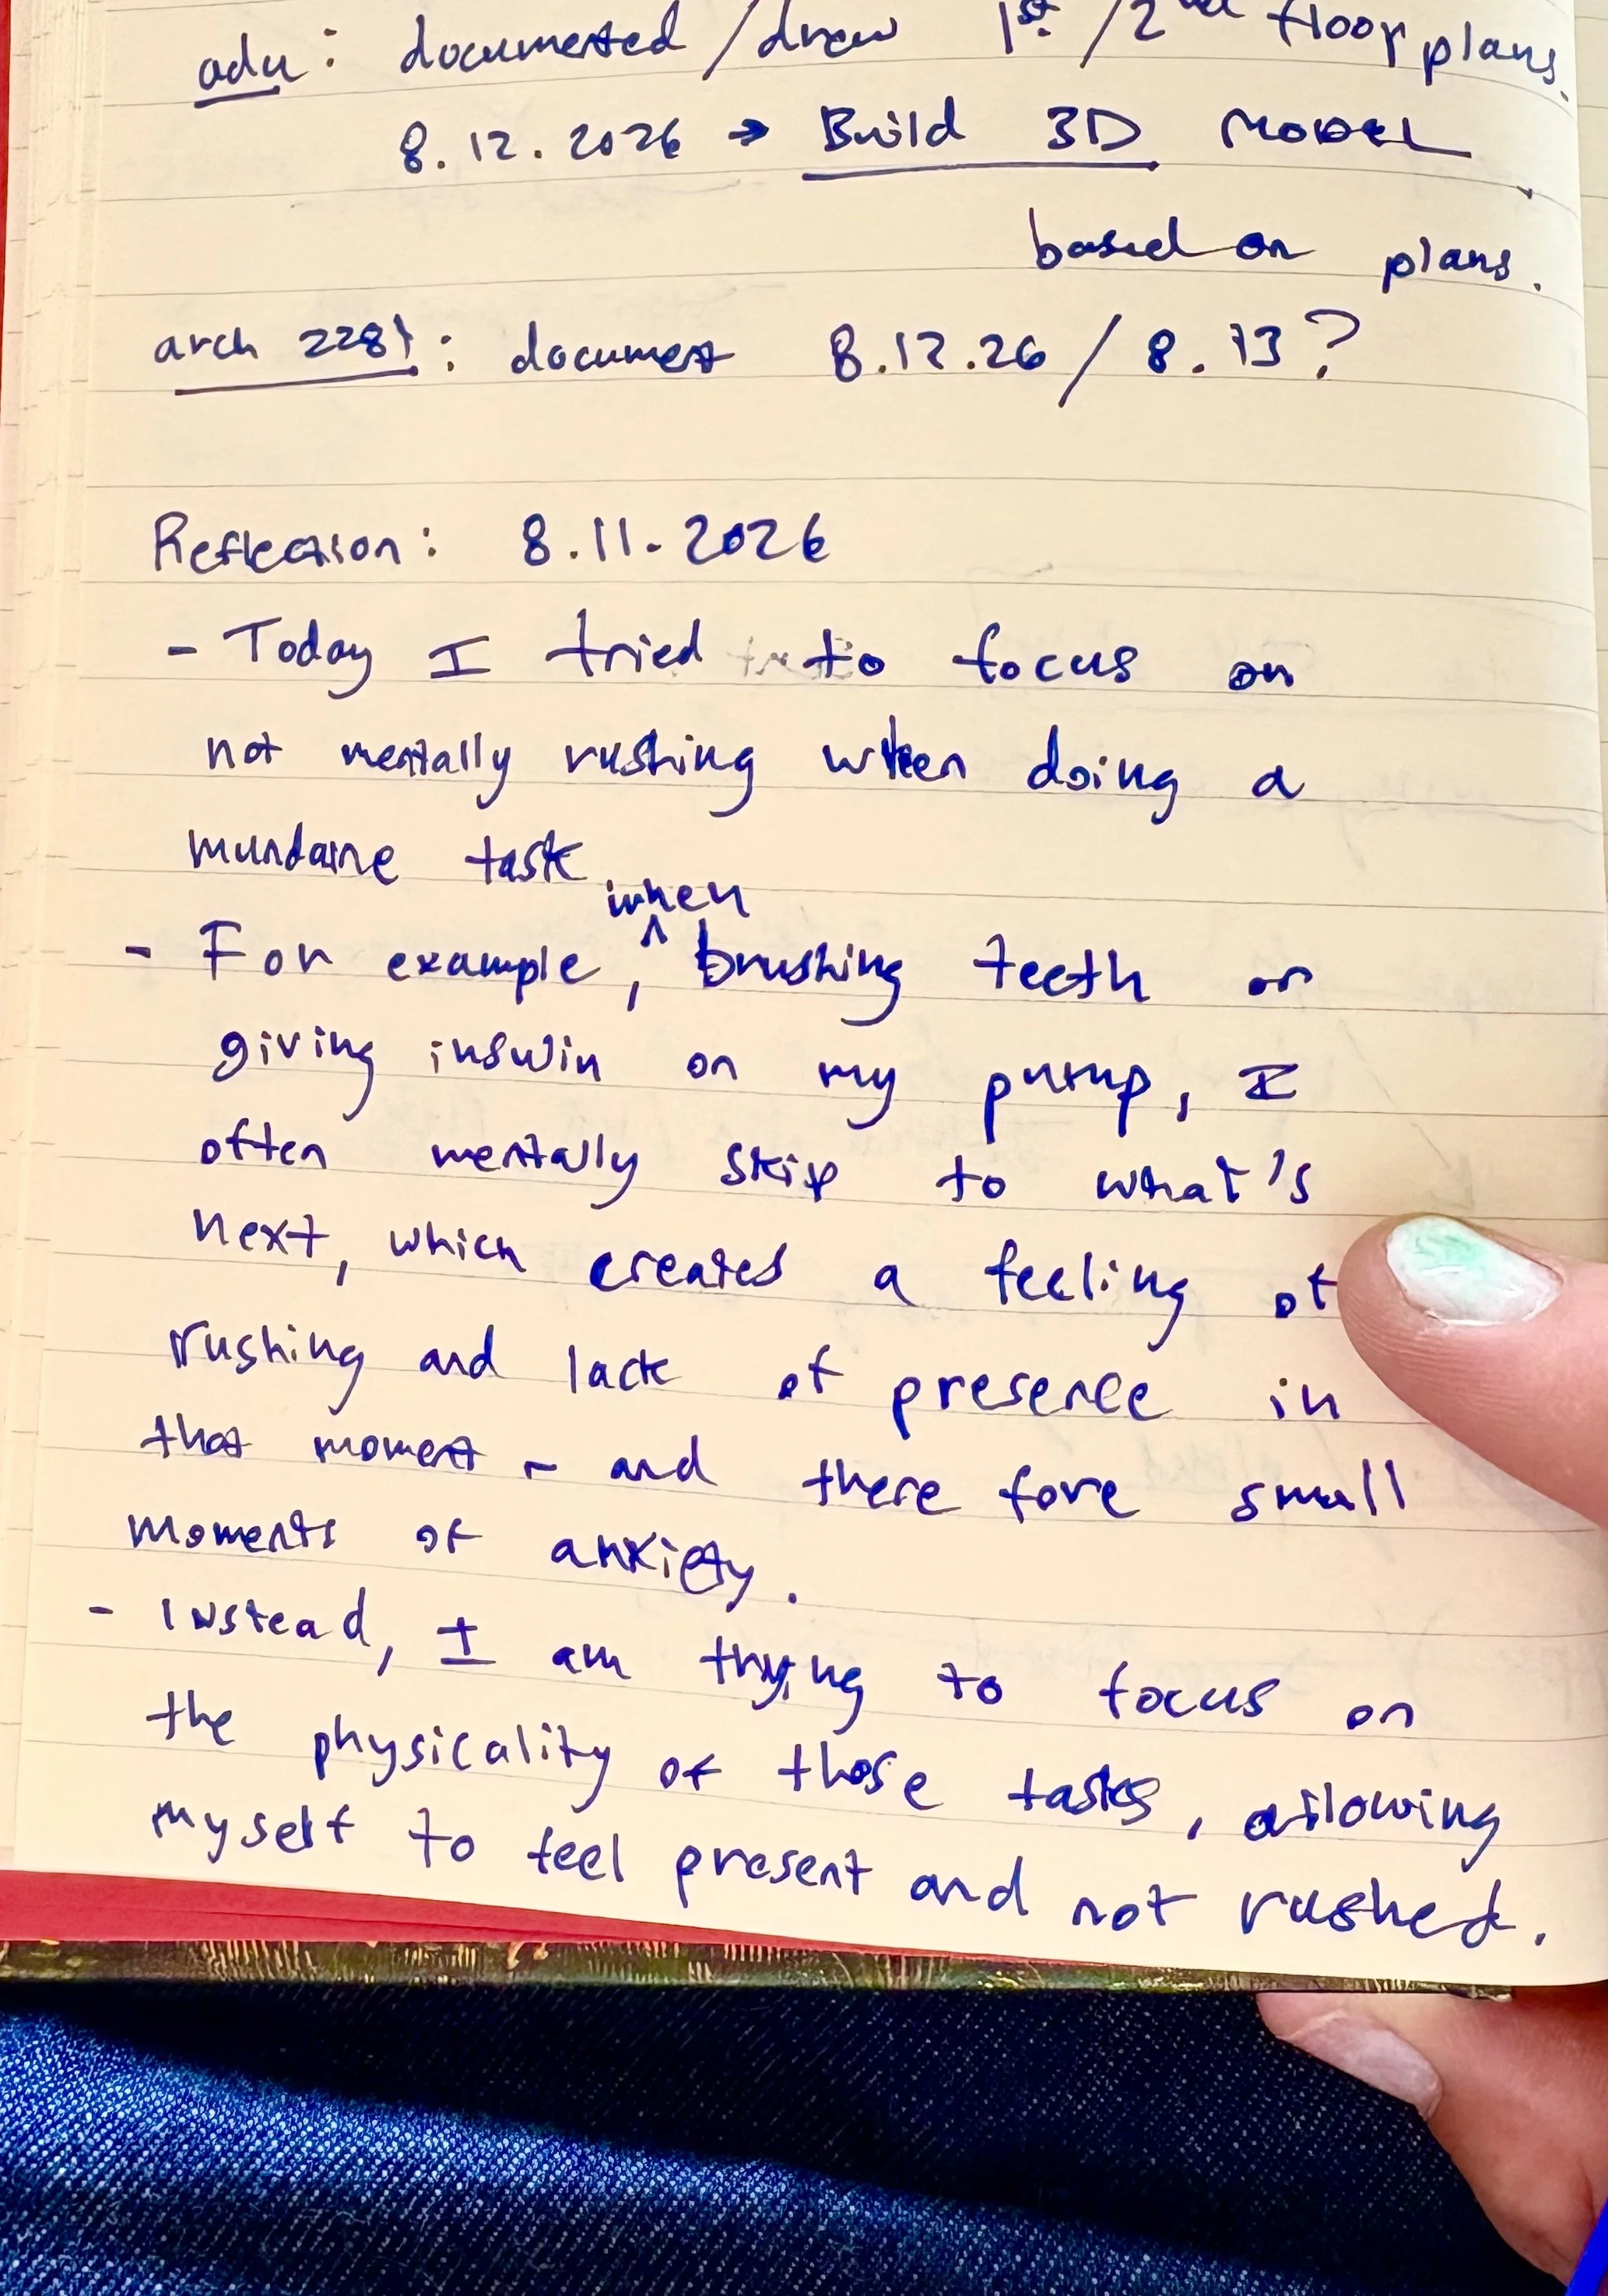 adu: documented / draw 1st / 2nd floor plans.
8.12.2026 → Build 3D MODEL
based on plans.
arch 2281: document 8.12.26 / 8.13?
Reflection: 8.11.2026
- Today I tried to focus on
not mentally rushing when doing a
mundane task
when
- For example, ^ brushing teeth or
giving insulin on my pump, I
often mentally skip to what's
next, which creates a feeling of
rushing and lack of presence in
that moment - and there fore small
moments of anxiety.
- Instead, I am trying to focus on
the physicality of those tasks, allowing
myself to feel present and not rushed.